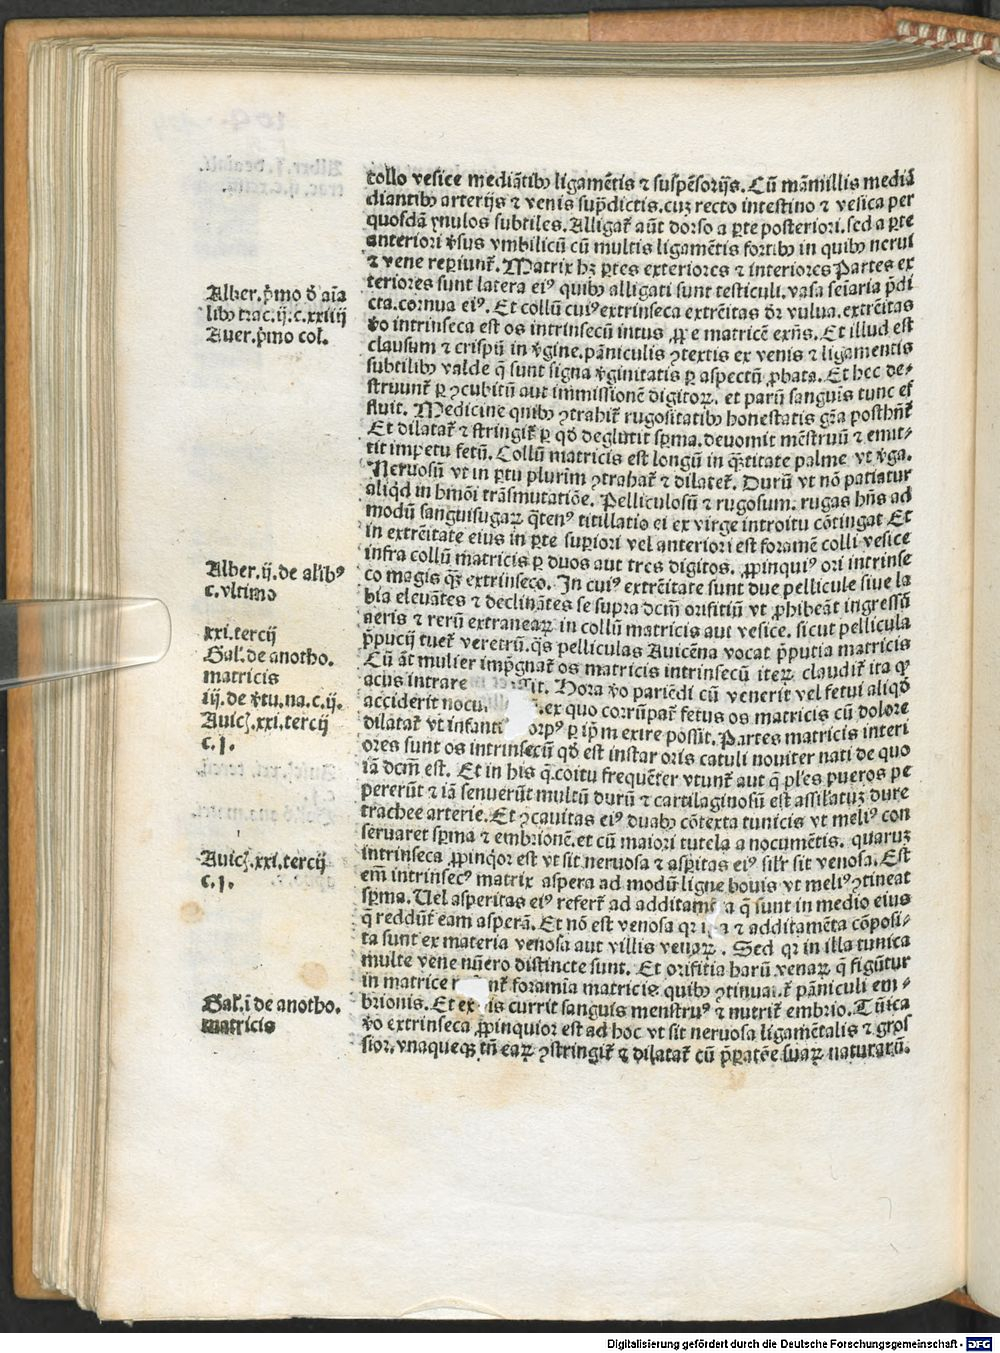 collo vesice mediātibꝰ ligamētis ⁊ suspēsorijs. Cū māmillis mediā
diantibꝰ arterijs ⁊ venis sup̄dictis. cuz recto intestino ⁊ vesica per
quosdā ꝯnulos subtiles. Alligat᷑ aūt dorso a ꝑte posteriori. sed a ꝑte
anteriori v̄sus vmbilicū cū multis ligamētis fortibꝰ in quibꝰ nerui
⁊ vene reꝑiunt᷑. Matrix hꝫ ꝑtes exteriores ⁊ interiores Partes ex
teriores sunt latera eiꝰ quibꝰ alligati sunt testiculi. vasa seīaria p̄di
cta. cornua eiꝰ. Et collū cuiꝰ extrinseca extrēitas d̄r vulua. extrēitas
v̄o intrinseca est os intrinsecū intus ꝓpe matricē exn̄s. Et illud est
clausum ⁊ crispū in v̄gine. pāniculis ꝯtextis ex venis ⁊ ligamentis
subtilibꝰ valde q̄ sunt signa v̄ginitatis ꝑ aspectū ꝓbata. Et hec de-
struunt᷑ ꝑ ꝯcubitū aut immissionē digitoꝝ. et parū sanguīs tunc ef
fluit. Medicine quibꝰ ꝯtrahit᷑ rugositatibꝰ honestatis gr̄a
Et dilatat᷑ ⁊ stringit᷑ ꝑ qd̄ deglutit sp̄ma. deuomit mēstruū ⁊ emit-
tit impetu fetū. Collū matricis est longū in q̄titate palme vt v̄ga.
Neruosū vt in ꝑtu plurim ꝯtrahat᷑ ⁊ dilatet᷑. Durū vt nō patiatur
aliqd in hmōi trāsmutatiōe. Pelliculosū ⁊ rugosum. rugas hn̄s ad
modū sanguisugaꝝ q̄tenꝰ titillatio ei ex virge introitu cōtingat Et
in extrēitate eius in ꝑte suꝑiori vel anteriori est foramē colli vesice
infra collū matricis ꝑ duos aut tres digitos. ꝓpinquiꝰ ori intrinse
co magis q̄ꝫ extrinseco. In cuiꝰ extrēitate sunt due pellicule siue la
bia eleuātes ⁊ declinātes se supra dcm̄ orifitiū vt ꝓhibeāt ingressū
aeris ⁊ rerū extraneaꝝ in collū matricis aut vesice. sicut pellicula
p̄pucij tuet᷑ veretrū. qs̄ pelliculas Auicēna vocat p̄putia matricis
Cū āt mulier imp̄gnat᷑ os matricis intrinsecū iteꝝ claudit᷑ ita ꝙ
acus intrare Hora v̄o pariēdi cū venerit vel fetui aliqd̄
acciderit ex quo corrūpat᷑ fetus os matricis cū dolore
dilatat᷑ vt infanti orpꝰ ꝑ ip̄m exire possit. Partes matricis interi
ores sunt os intrinsecū qd̄ est instar oris catuli nouiter nati de quo
iā dcm̄ est. Et in his q̄ coitu frequēter vtunt᷑ aut q̄ pl̄es pueros pe
pererūt ⁊ iā senuerūt multū durū ⁊ cartilaginosū est assil̄atuꝫ dure
trachee arterie. Et ꝯcauitas eiꝰ duabꝰ cōtexta tunicis vt meliꝰ con
seruaret sp̄ma ⁊ embrionē. et cū maiori tutela a nocumētis. quaruꝫ
intrinseca ꝓpinq̄or est vt sit neruosa ⁊ asꝑitas eiꝰ sil̄r sit venosa. Est
em̄ intrinsecꝰ matrix aspera ad modū ligne bouis vt meliꝰ ꝯtineat
sp̄ma. Uel asperitas eiꝰ refert᷑ ad additamēta q̄ sunt in medio eius
q̄ reddūt eam asperā. Et nō est venosa qr ⁊ additamēta cōposi-
ta sunt ex materia venosa aut villis venaꝝ. Sed qr in illa tunica
multe vene nūero distincte sunt. Et orifitia harū venaꝝ q̄ figūtur
in matrice foramia matricis quibꝰ ꝯtinuant᷑ pāniculi em-
brionis. Et ex is currit sanguis menstruꝰ ⁊ nutrit᷑ embrio. Tūica
v̄o extrinseca ꝓpinquior est ad hoc vt sit neruosa ligamētalis ⁊ gros
sior. vnaqueqꝫ tn̄ earꝝ ꝯstringit᷑ ⁊ dilatat᷑ cū p̄paratōe suaꝝ naturarū.
Alber. p̄mo d̄ aīa
libꝰ trac. ij. c. xxiiij
Auer. p̄mo col.
Alber. ij. de al̄ibꝰ
c. vltimo
xxi. tercij
Gal̄. de anotho.
matricis
iij. de v̄tu. na. c. ij.
Auicꝫ. xxi. tercij
c. j.
Auicꝫ. xxi. tercij
c. j.
Gal̄. i de anotho.
matricis
Digitalisierung gefördert durch die Deutsche Forschungsgemeinschaft - DFG